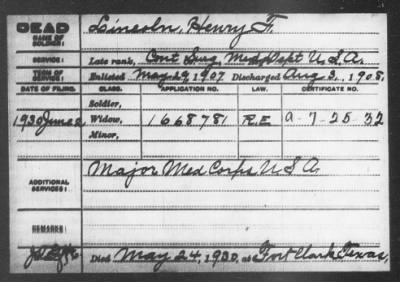 DEAD Lincoln, Henry F.
NAME OF SOLDIER:
SERVICE: Late rank, Cont Surg, Med Dept U.S.A.
TERM OF SERVICE: Enlisted May 29, 1907, Discharged Aug 3, 1908,
DATE OF FILING. CLASS. APPLICATION NO. LAW. CERTIFICATE NO.
Soldier,
1930 June 2, Widow, 1668781 R.E a-7-25-32
Minor,
ADDITIONAL SERVICES: Major Med Corps U S A.
REMARKS:
Died May 24, 1930, at Fort Clark Texas,